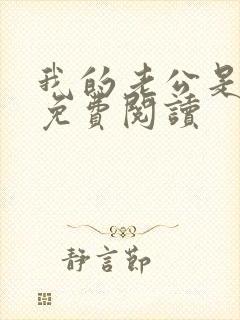 我的老公是
免費閱讀
靜言節